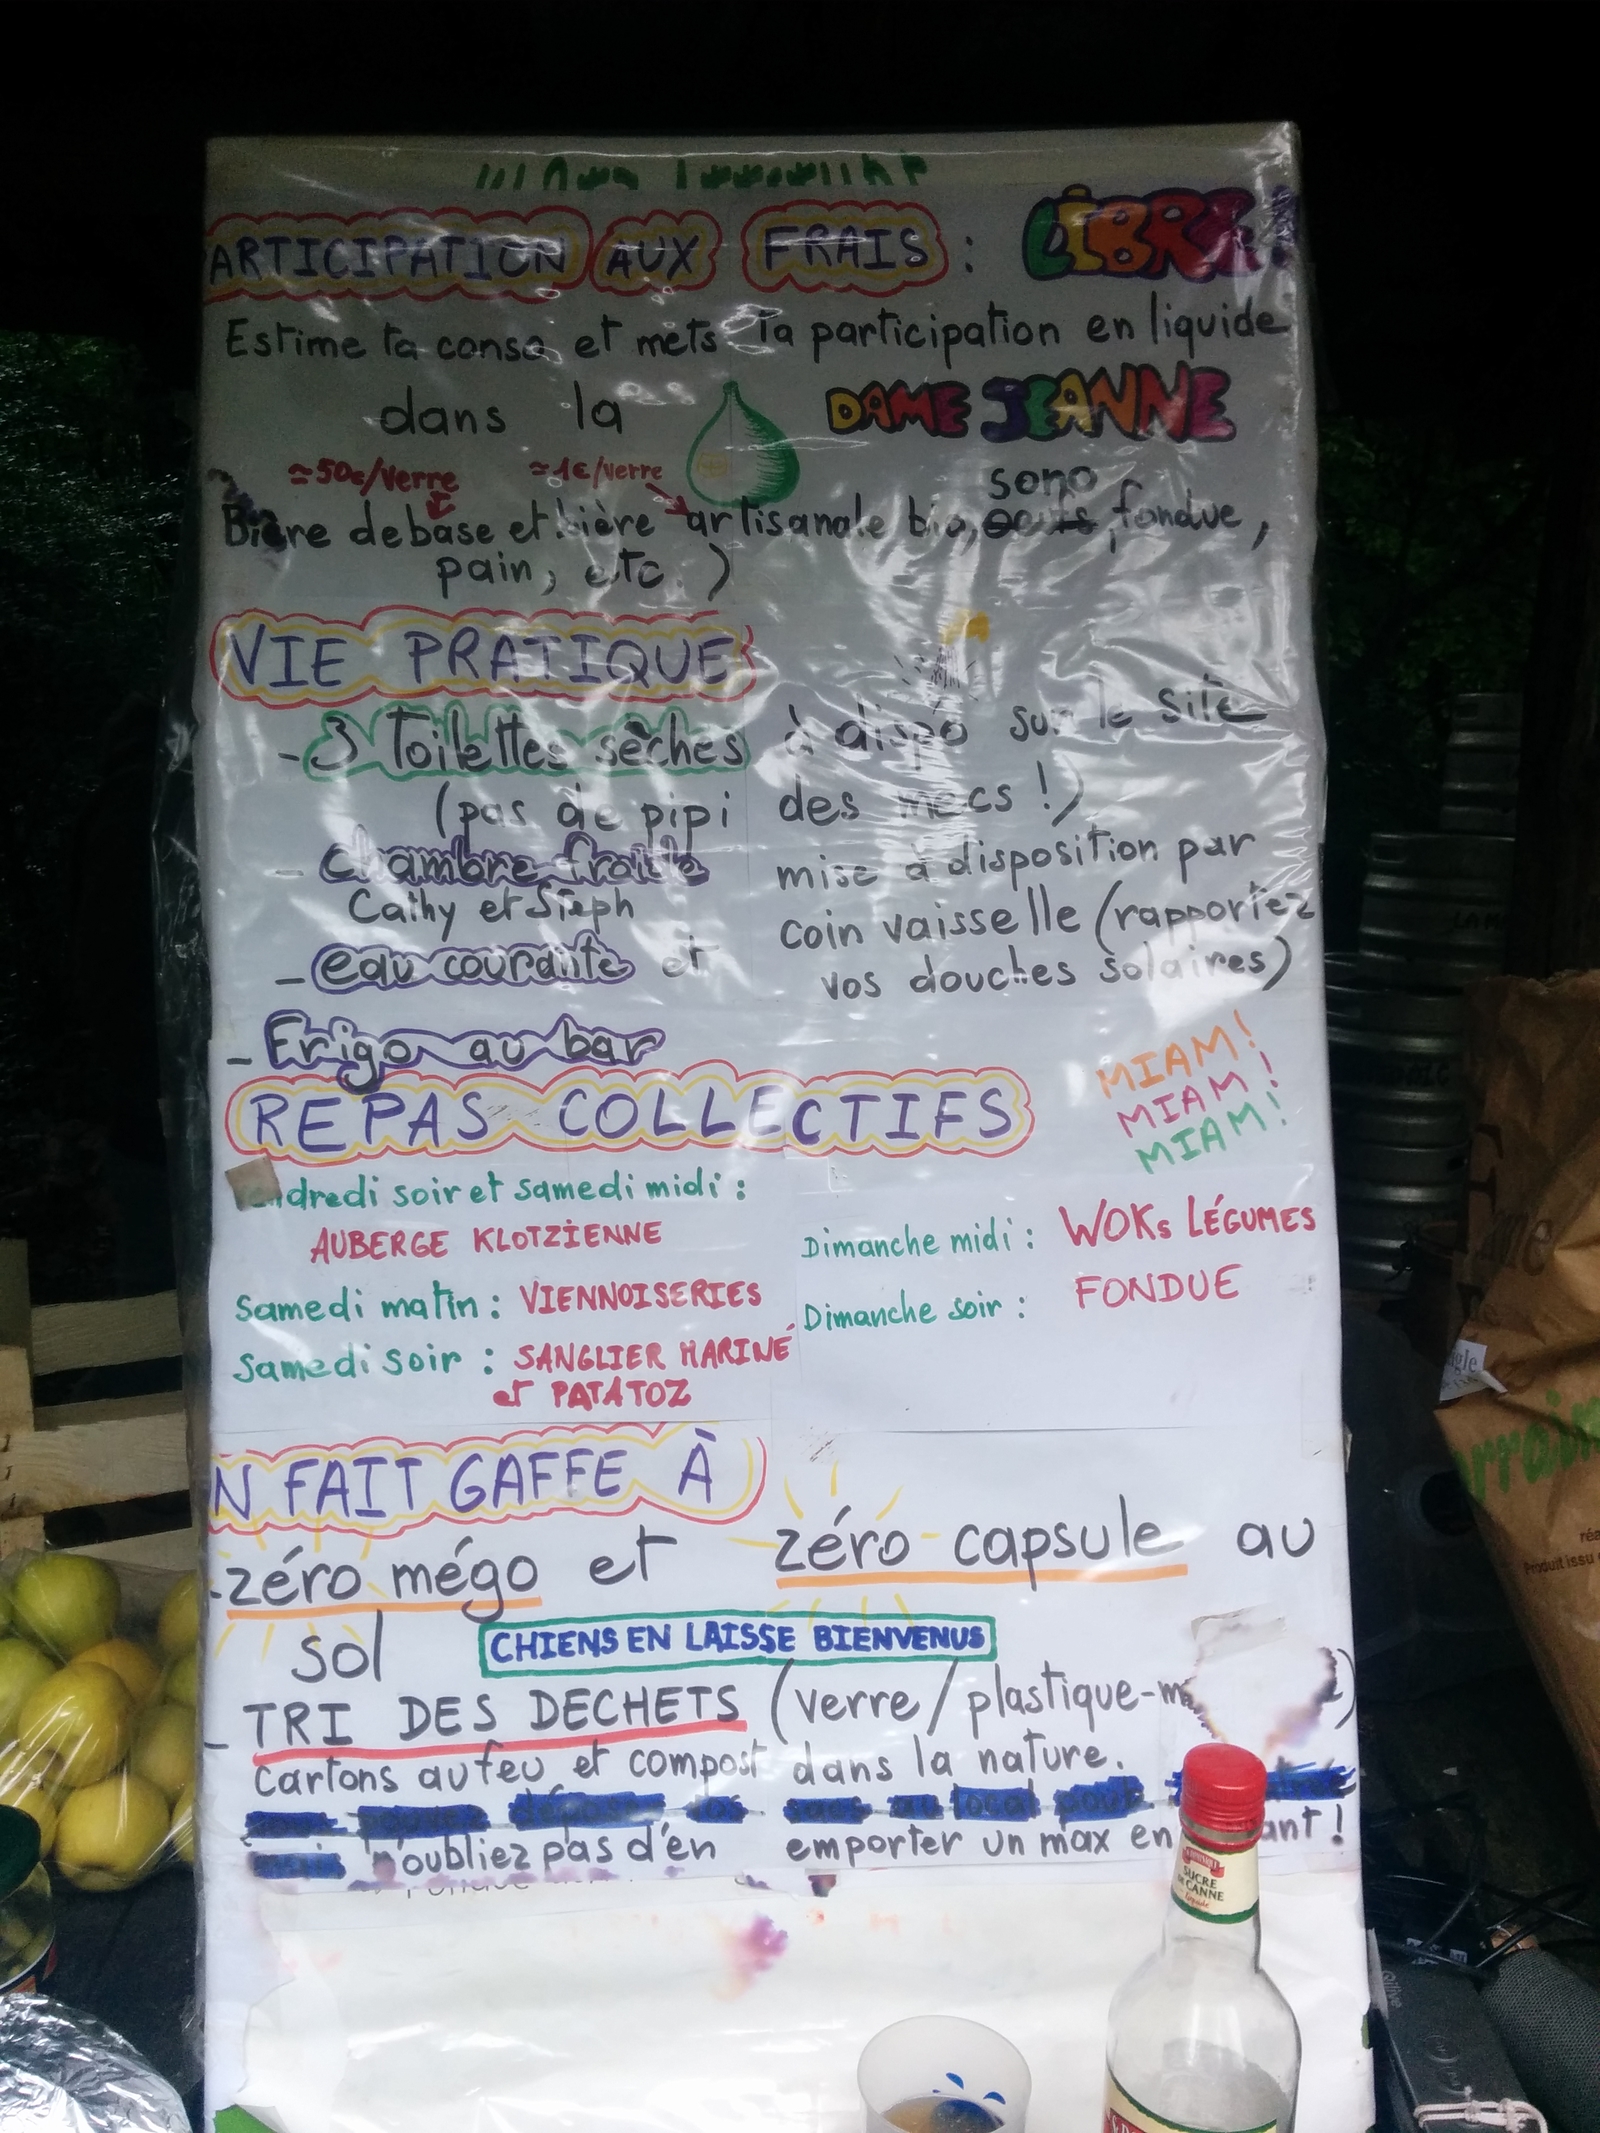 ARTICIPATION AUX FRAIS : LIBRE!
Estime ta conso et mets ta participation en liquide
dans la DAME JEANNE
≃50c/verre ≃1€/verre sono
Bière de base et bière artisanale bio, fondue,
pain, etc.)
VIE PRATIQUE
- 3 Toilettes sèches à dispo sur le site
(pas de pipi des mecs !)
- chambre froide mise à disposition par
Cathy et Steph
- eau courante et coin vaisselle (rapportez
vos douches solaires)
- Frigo au bar
REPAS COLLECTIFS
MIAM!
MIAM!
MIAM!
dredi soir et samedi midi :
AUBERGE KLOTZIENNE
Samedi matin : VIENNOISERIES
Samedi soir : SANGLIER MARINÉ
et PATATOZ
Dimanche midi : WOKs LÉGUMES
Dimanche soir : FONDUE
N FAIT GAFFE À
-zéro mégo et zéro capsule au
sol
CHIENS EN LAISSE BIENVENUS
- TRI DES DECHETS (verre/plastique-m )
Cartons au feu et compost dans la nature.
n'oubliez pas d'en emporter un max en ant !
SUCRE
DE CANNE
liquide
Produit issu
Qilive